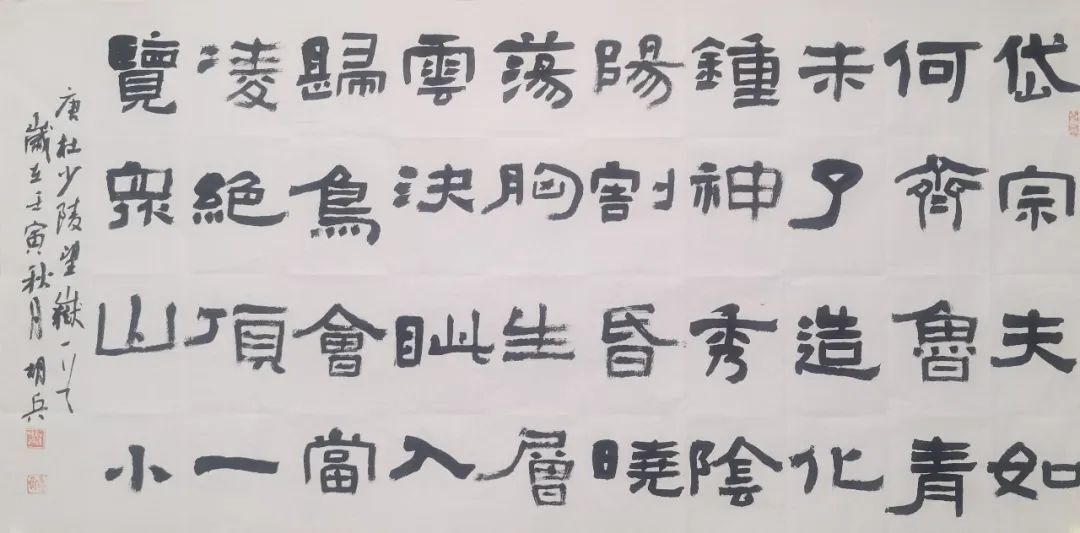 岱宗夫如
何齊魯青
未了造化
鍾神秀陰
陽割昏曉
蕩胸生層
雲決眦入
歸鳥會當
凌絶頂一
覽眾山小
唐杜少陵望嶽一首
歲在壬寅秋月胡兵